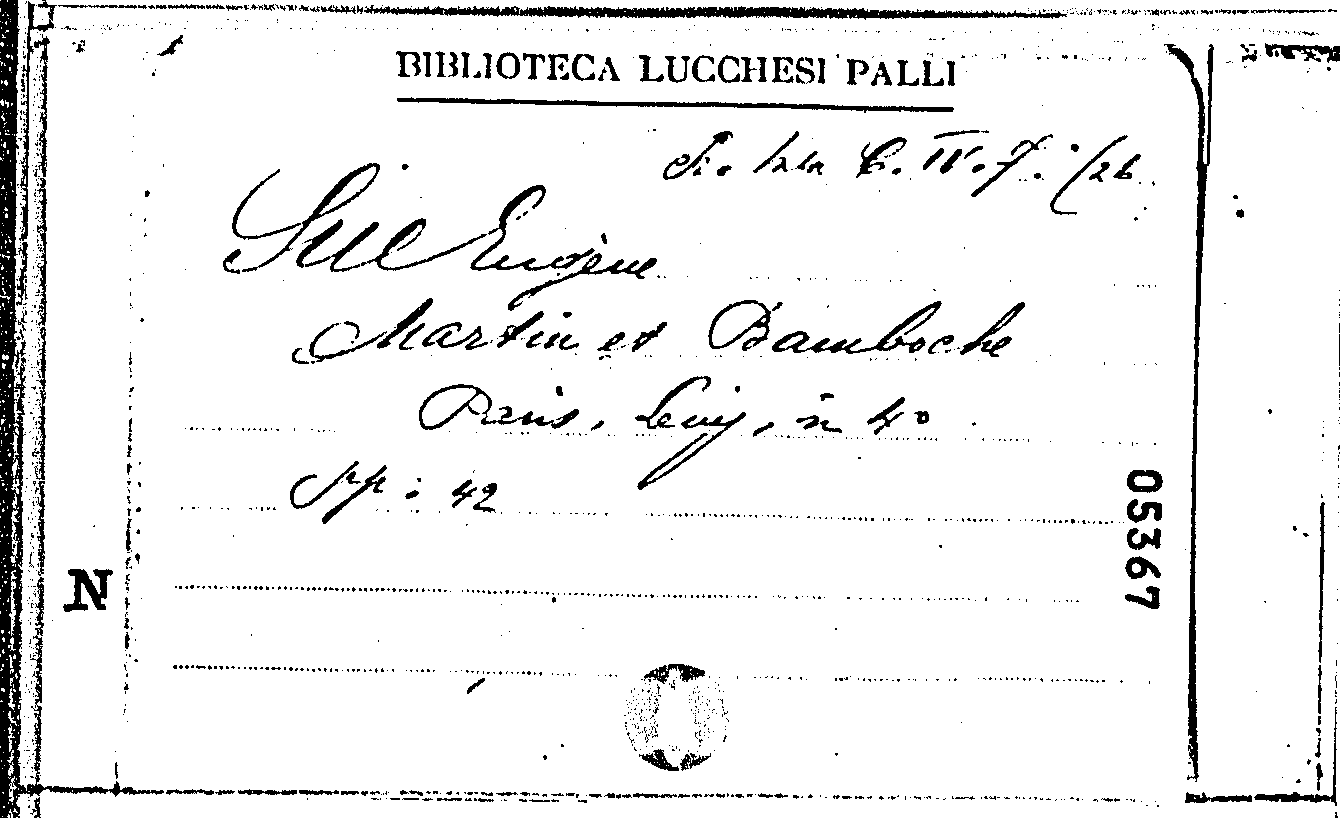 BIBLIOTECA LUCCHESI PALLI
C. IV. 7. /26
Sue Eugène
Martin et Bamboche
Paris, Levy, in 4°
pp: 42
05367
N